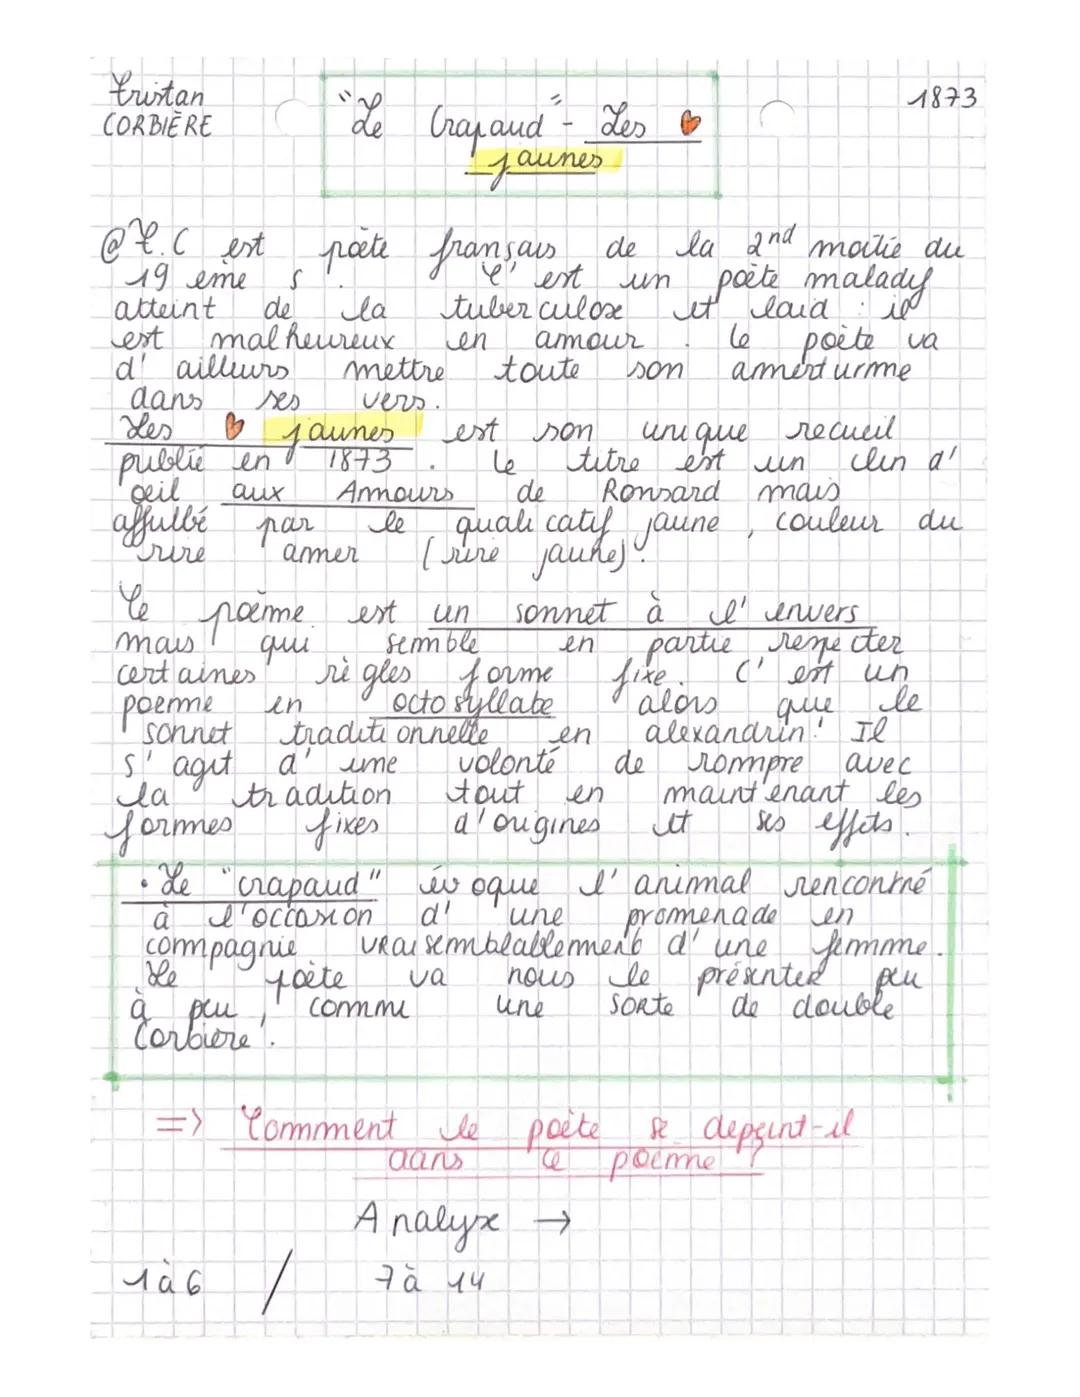 Tristan
CORBIÈRE
"Le Crapaud" - Les ❤
jaunes
1873
@T.C est poète français de la 2nd moitié du
19 eme s. C'est un poète malady
atteint de la tuberculose et laid : il
est malheureux en amour. Le poète va
d'ailleurs mettre toute son amerturme
dans ses vers.
Les ❤ jaunes est son unique recueil
publié en 1873. Le titre est un clin d'
œil aux Amours de Ronsard mais
affulbé par le qualicatif jaune, couleur du
rire amer (rire jaune).
Le poème est un sonnet à l'envers
mais qui semble en partie respecter
certaines règles forme fixe. C'est un
poeme en octosyllabe alors que le
sonnet traditionnelle en alexandrin. Il
s'agit d'une volonté de rompre avec
la tradition tout en maintenant les
formes fixes d'origines et ses effets.
• Le "crapaud" évoque l'animal rencontré
à l'occasion d'une promenade en
compagnie vraisemblablement d'une femme.
Le poète va nous le présenter peu
à peu, comme une sorte de double
Corbière.
=> Comment le poète se depeint-il
dans ce poème ?
Analyse →
1 à 6 / 7 à 14